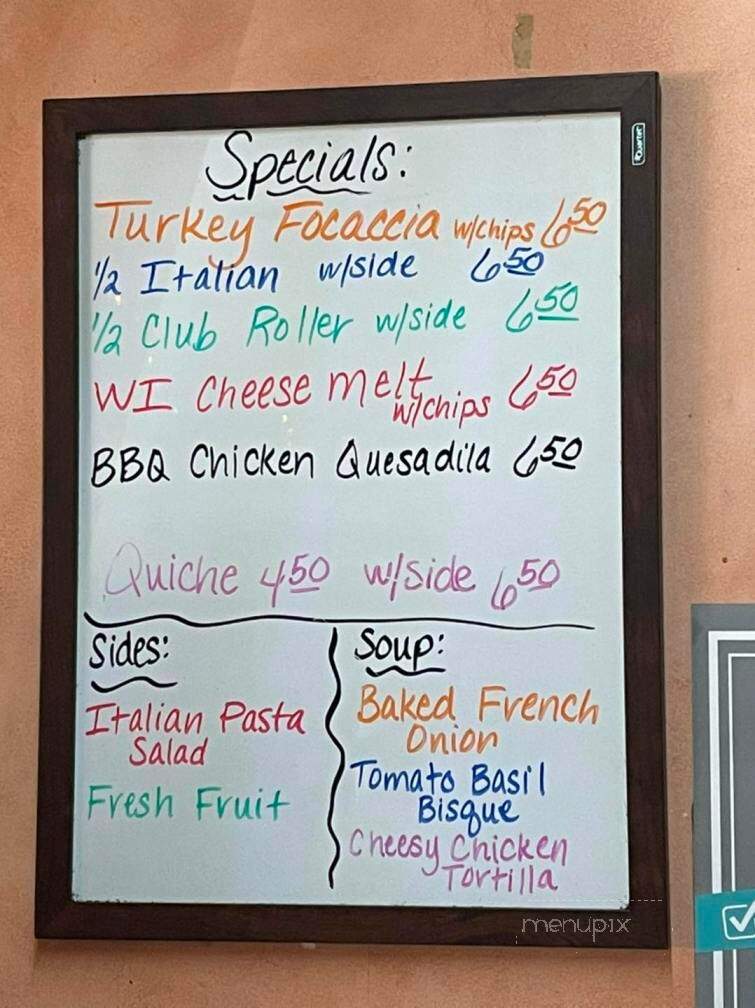 Quartet
Specials:
Turkey Focaccia w/chips 6.50
1/2 Italian w/side 6.50
1/2 Club Roller w/side 6.50
WI Cheese melt w/chips 6.50
BBQ Chicken Quesadila 6.50
Quiche 4.50 w/side 6.50
Sides:
Italian Pasta
Salad
Fresh Fruit
Soup:
Baked French
Onion
Tomato Basil
Bisque
Cheesy Chicken
Tortilla
menupix